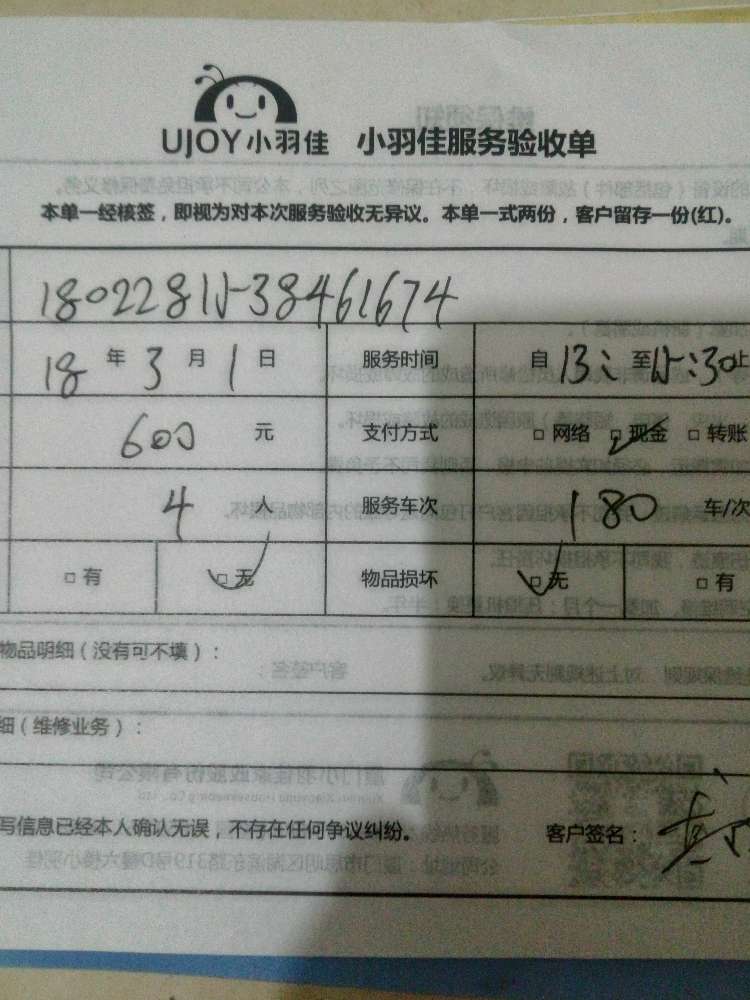 UJOY小羽佳 小羽佳服务验收单
本单一经核签，即视为对本次服务验收无异议。本单一式两份，客户留存一份(红)。
18022815-38461674
18 年 3 月 1 日 服务时间 自 13: 至 15:30止
600 元 支付方式 □ 网络 □ 现金 □ 转账
4 人 服务车次 180 车/次
□ 有 □ 无 物品损坏 □ 无 □ 有
物品明细（没有可不填）：
细（维修业务）：
写信息已经本人确认无误，不存在任何争议纠纷。 客户签名：